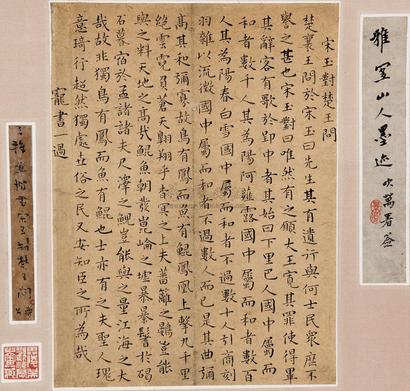 雅宜山人墨迹 次萬署簽
宋玉對楚王問
楚襄王問於宋玉曰先生其有遺行與何士民衆庶不
譽之甚也宋玉對曰唯然有之願大王寬其罪使得畢
其辭客有歌於郢中者其始曰下里巴人國中屬而
和者數千人其為陽阿薤露國中屬而和者數百
人其為陽春白雪國中屬而和者不過數十人引商刻
羽雜以流徵國中屬而和者不過數人而已是其曲彌
高其和彌寡故鳥有鳳而魚有鯤鳳凰上擊九千里
絶雲霓負蒼天翱翔乎杳冥之上夫蕃籬之鷃豈能
與之料天地之高哉鯤魚朝發崑崙之墟暴鬐於碣
石暮宿於孟諸夫尺澤之鯢豈能與之量江海之大
哉故非獨鳥有鳳而魚有鯤也士亦有之夫聖人瑰
意琦行超然獨處世俗之民又安知臣之所為哉
寵書過